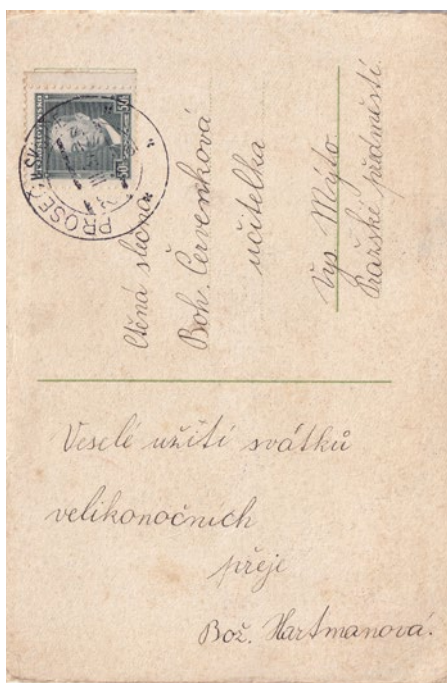 ČESKOSLOVENSKO
50 50
PROSEČ U SK
Ctěná slečna
Boh. Červenková
učitelka
Vys. Mýto
Pražské předměstí.
Veselé užití svátků
velikonočních
přeje
Bož. Hartmanová.